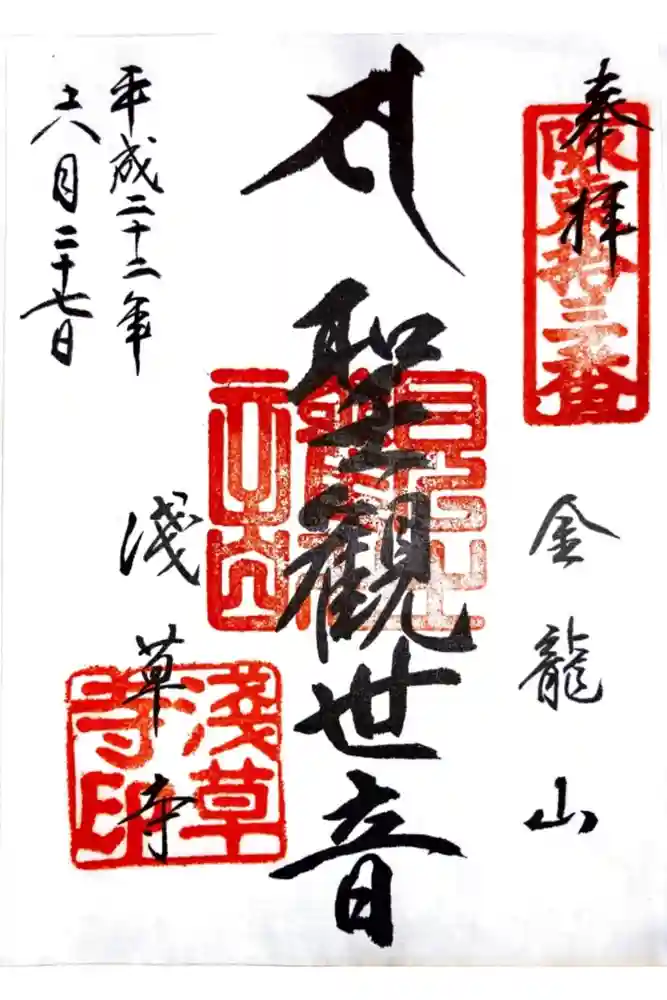 奉拝
阪東拾三番
金龍山
聖観世音
淺草寺
淺草寺印
平成二十二年
六月二十七日